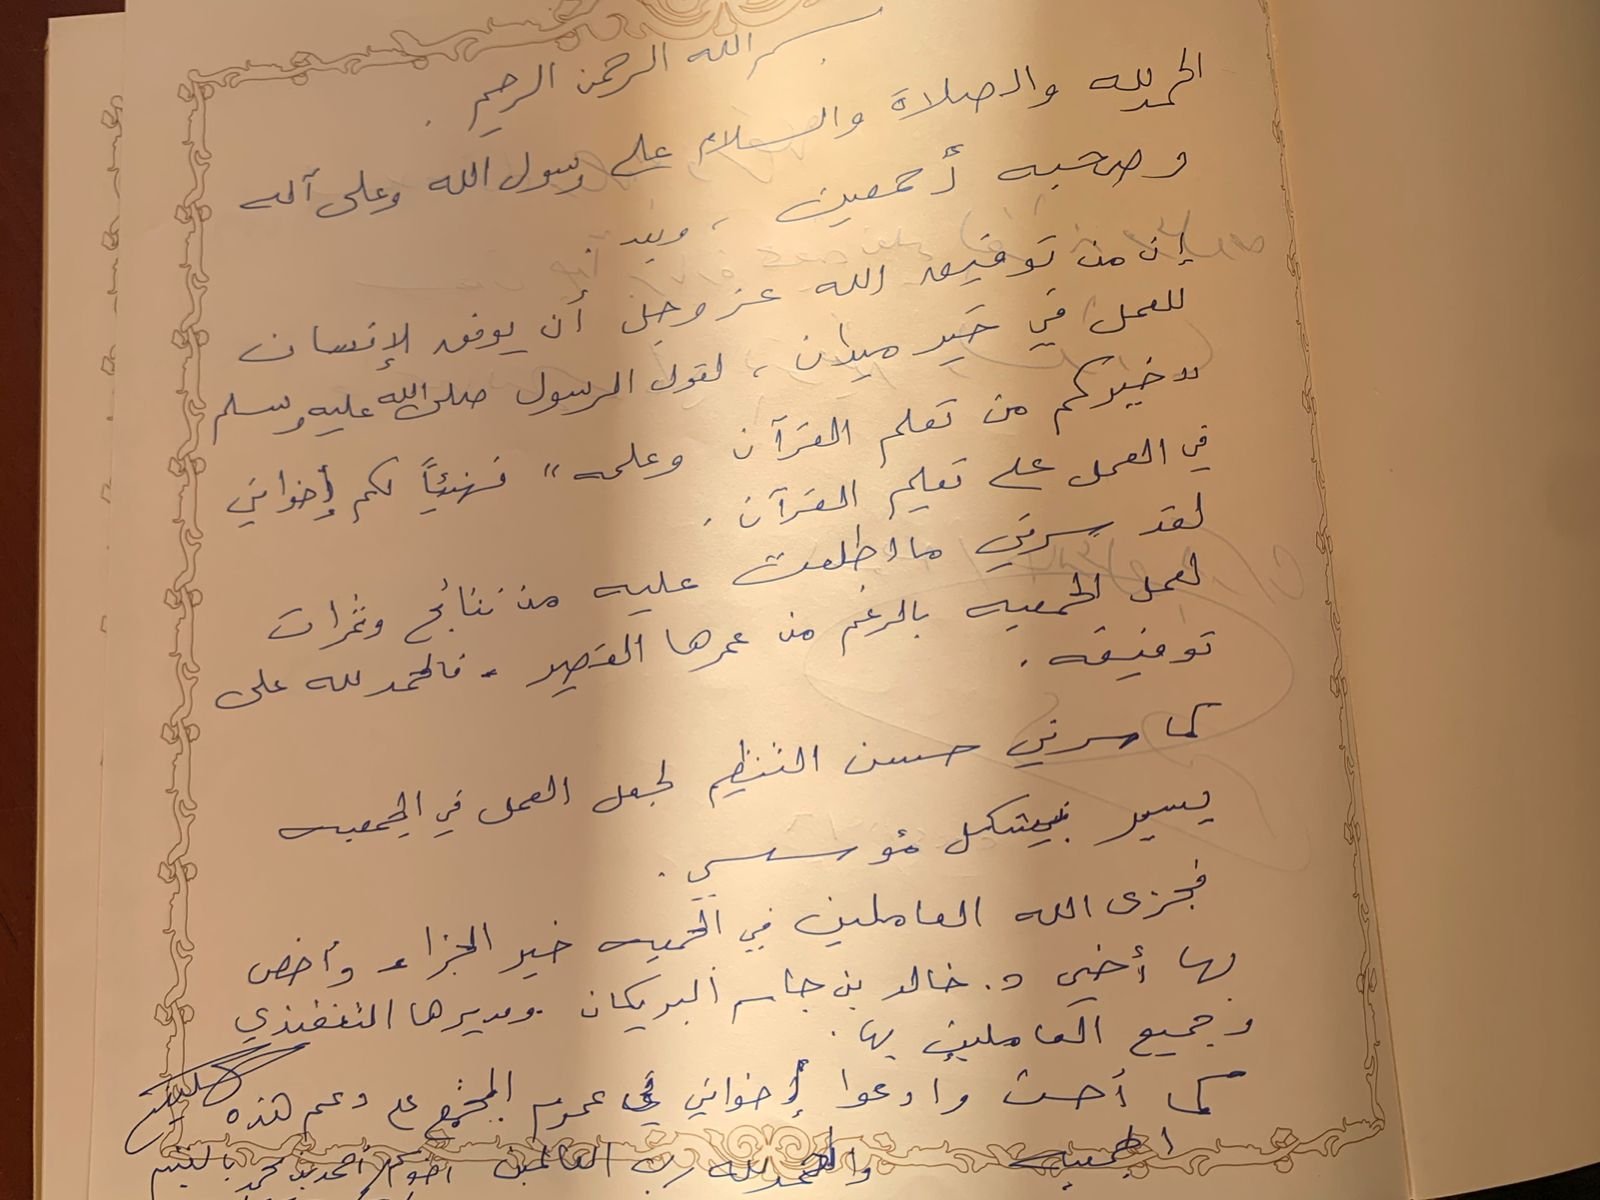 بسم الله الرحمن الرحيم .
الحمد لله والصلاة والسلام على رسول الله وعلى آله
وصحبه أجمعين ، وبعد .
إن من توفيق الله عز وجل أن يوفق الإنسان
للعمل في خير ميدان ، لقول الرسول صلى الله عليه وسلم
" خيركم من تعلم القرآن وعلمه " فهنيئاً لكم إخواني
في العمل على تعليم القرآن .
لقد سرني ما اطلعت عليه من نتائج وثمرات
لعمل الجمعيه بالرغم من عمرها القصير . فالحمد لله على
توفيقه .
كما سرني حسن التنظيم لجعل العمل في الجمعيه
يسير بشكل مؤسسي .
فجزى الله العاملين في الجمعيه خير الجزاء وأخص
بها أخي د. خالد بن جاسم البريكان ومديرها التنفيذي
وجميع العاملين بها .
كما أحث وادعوا إخواني في عموم المجتمع على دعم هذه
الجمعيه والحمد لله رب العالمين اخوكم / احمد بن محمد